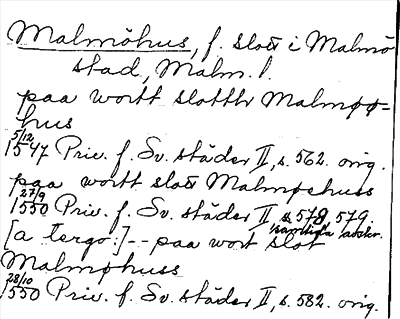 Malmöhus, f. slott i Malmö
stad, Malm. l.
paa wortt slotth Malmøø-
hus
5/12
1547 Priv. f. Sv. städer II, s. 562. orig.
paa wortt slott Malmøehuss
27/9
1550 Priv. f. Sv. städer II, s. 578, 579.
samtida avskr.
[a tergo:] -- paa wort slot
Malmøhuss
28/10
1550 Priv. f. Sv. städer II, s. 582. orig.